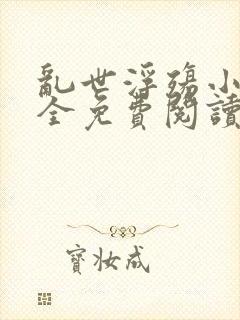 亂世浮殤小
全免費閱讀
寶妝成